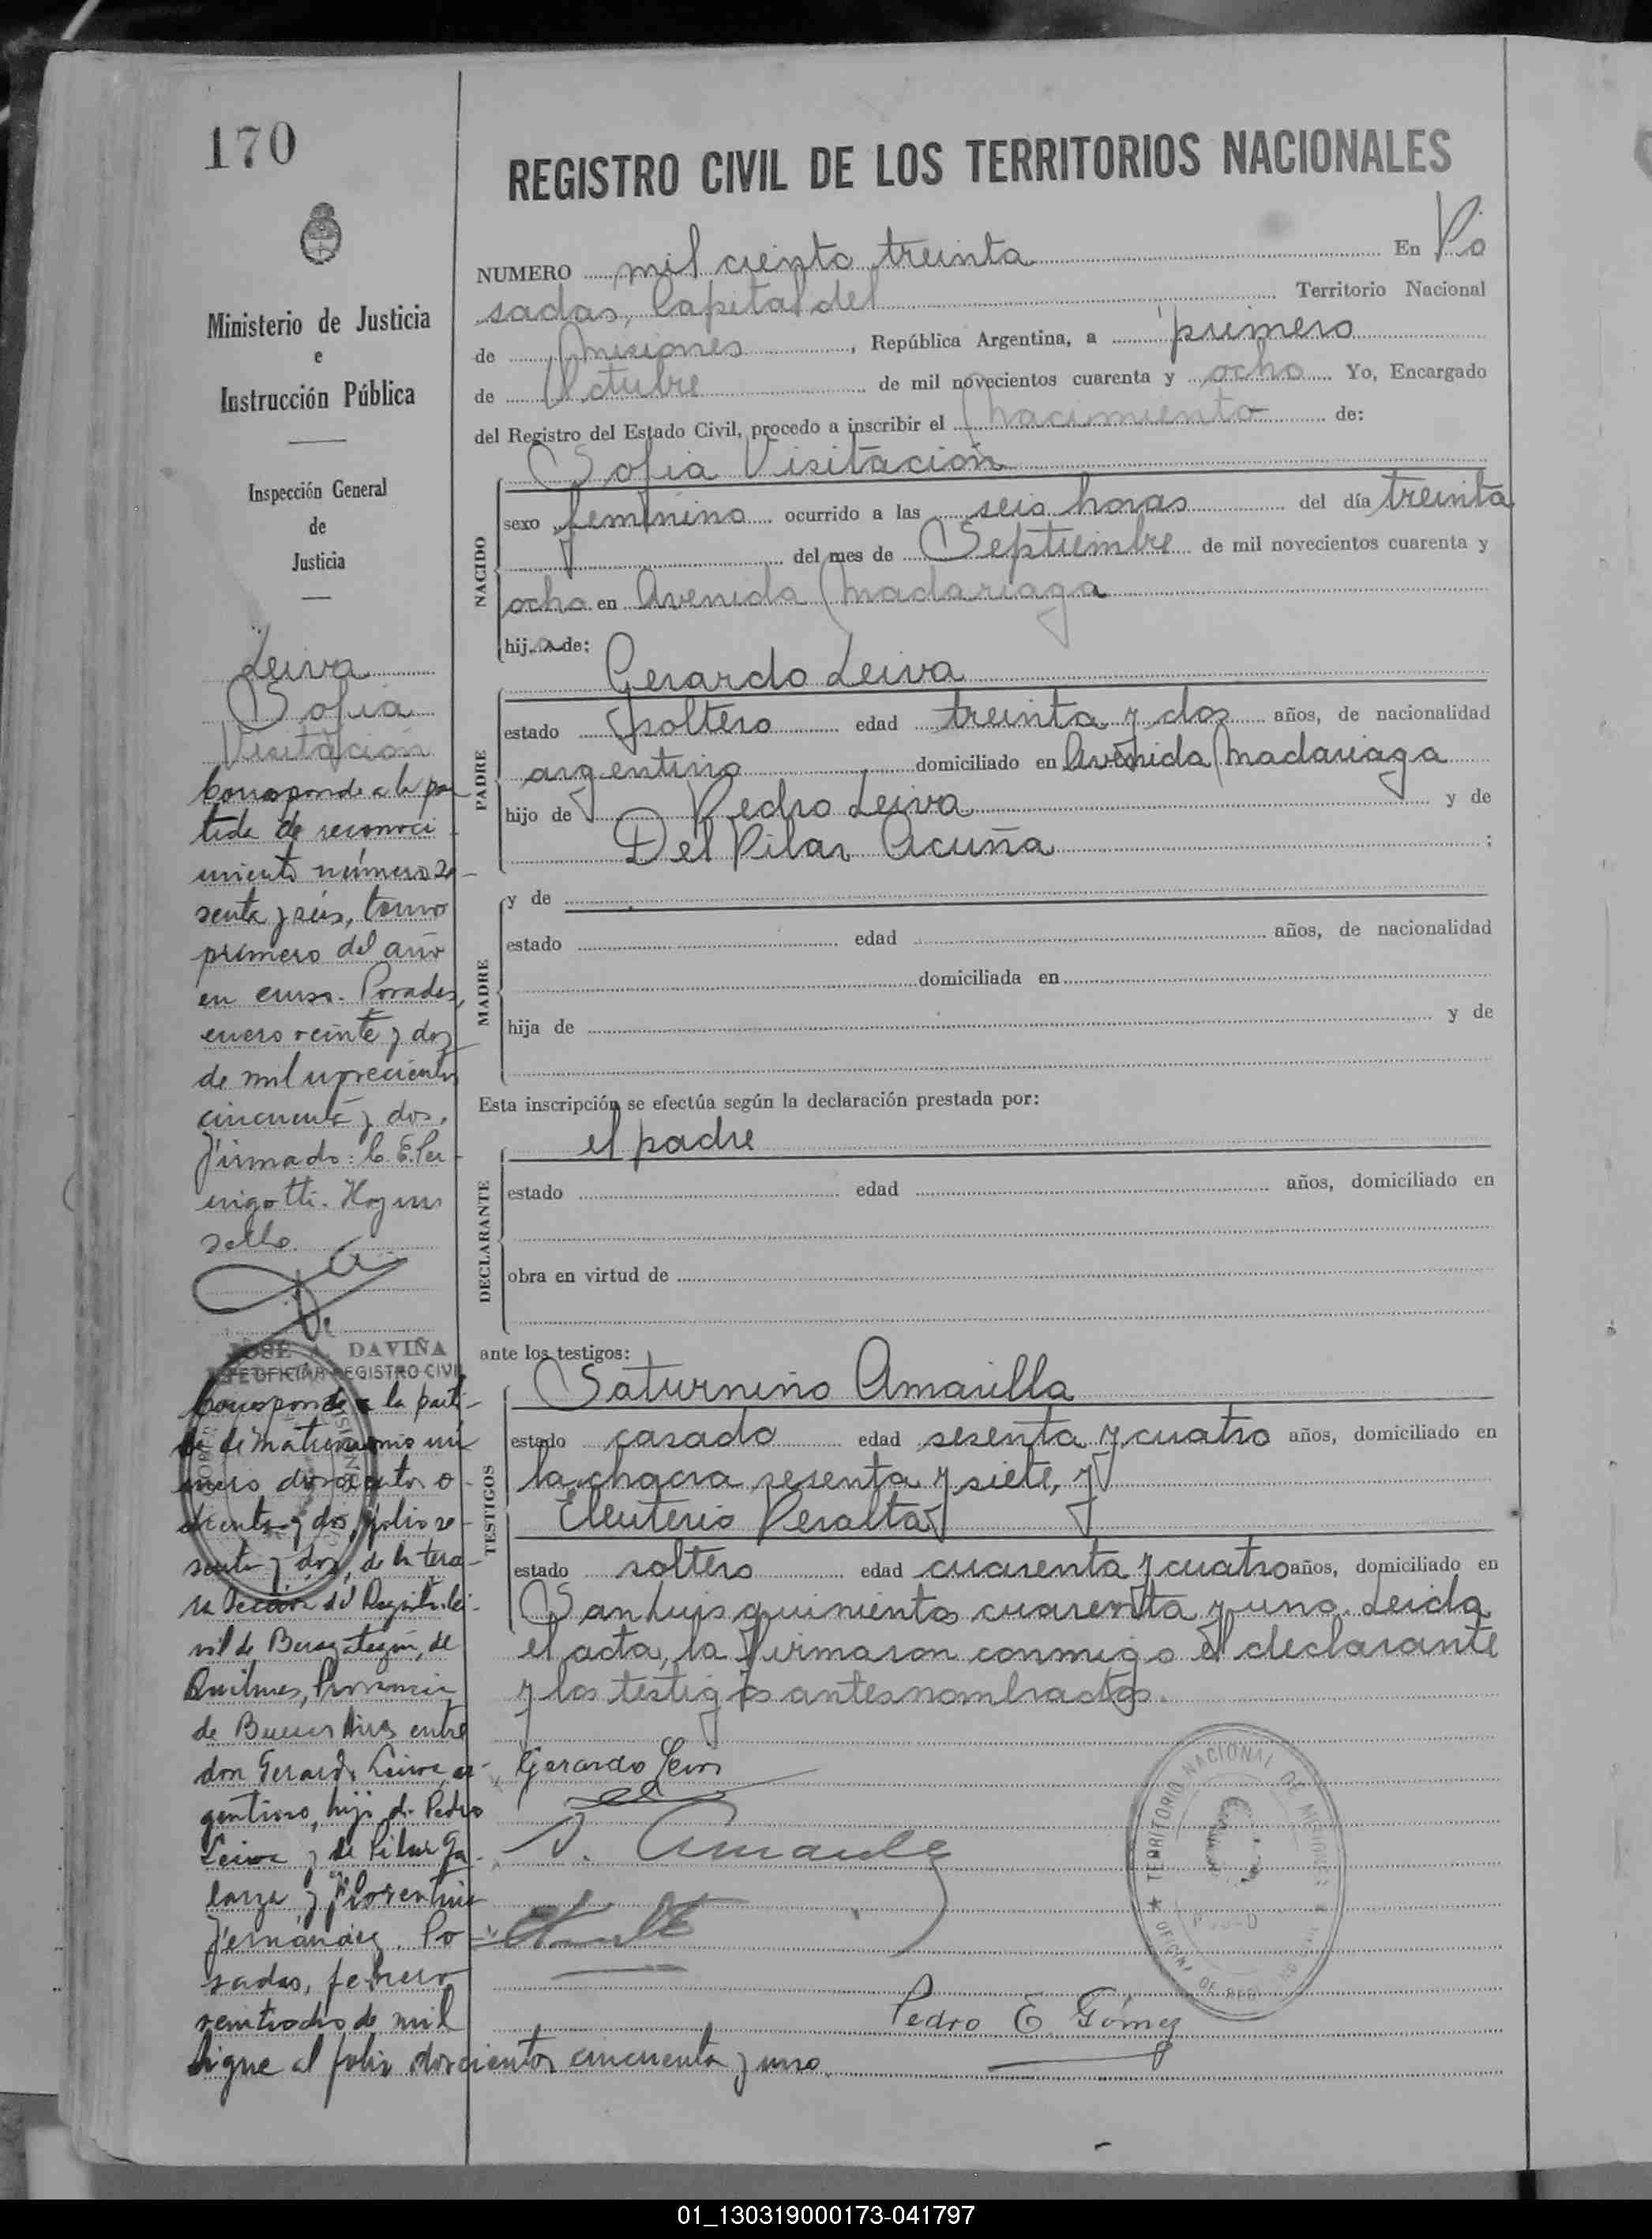 170
Ministerio de Justicia
e
Instrucción Pública
Inspección General
de
Justicia
Leiva
Sofia
Visitación
Corresponde a la par
tida de reconoci
miento número se
senta y seis, tomo
primero del año
en curso. Posadas,
enero veinte y dos
de mil novecientos
cincuenta y dos.
Firmado: C. E. Per
rigotti. Hay un
sello.
JOSE A. DAVIÑA
JEFE OFICINA REGISTRO CIVIL
Corresponde a la parti
da de matrimonio nú
mero doscientos o
chenta y dos, folio se
senta y dos, de la terce
ra Sección del Registro Ci
vil de Berazategui, de
Quilmes, Provincia
de Buenos Aires entre
don Gerardo Leiva, ar
gentino, hijo de Pedro
Leiva y de Pilar Ga
larza y Florentina
Fernández. Po
sadas, febrero
veintiocho de mil
Sigue al folio doscientos cincuenta y uno.
REGISTRO CIVIL DE LOS TERRITORIOS NACIONALES
NUMERO mil ciento treinta En Po
sadas, Capital del Territorio Nacional
de Misiones, República Argentina, a primero
de Octubre de mil novecientos cuarenta y ocho Yo, Encargado
del Registro del Estado Civil, procedo a inscribir el nacimiento de:
Sofia Visitación
NACIDO
sexo femenino ocurrido a las seis horas del día treinta
del mes de Septiembre de mil novecientos cuarenta y
ocho en Avenida Madariaga
hija de:
Gerardo Leiva
PADRE
estado soltero edad treinta y dos años, de nacionalidad
argentino domiciliado en Avenida Madariaga
hijo de Pedro Leiva y de
Del Pilar Acuña ;
MADRE
y de
estado edad años, de nacionalidad
domiciliada en
hija de y de
Esta inscripción se efectúa según la declaración prestada por:
el padre
DECLARANTE
estado edad años, domiciliado en
obra en virtud de
ante los testigos:
Saturnino Amarilla
TESTIGOS
estado casado edad sesenta y cuatro años, domiciliado en
la chacra sesenta y siete, y
Eleuterio Peralta
estado soltero edad cuarenta y cuatro años, domiciliado en
San Luis quinientos cuarenta y uno. Leida
el acta, la firmaron conmigo el declarante
y los testigos antes nombrados.
Gerardo Leiva
TERRITORIO NACIONAL DE MISIONES
Pedro E. Gómez
01_130319000173-041797